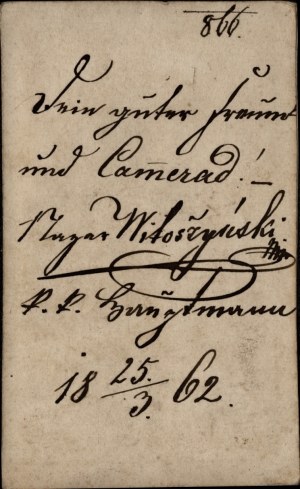 866.
Dein guter Freund
und Camerad! –
Nazar Witoszyński
k. k. Hauptmann
18 25./3. 62.